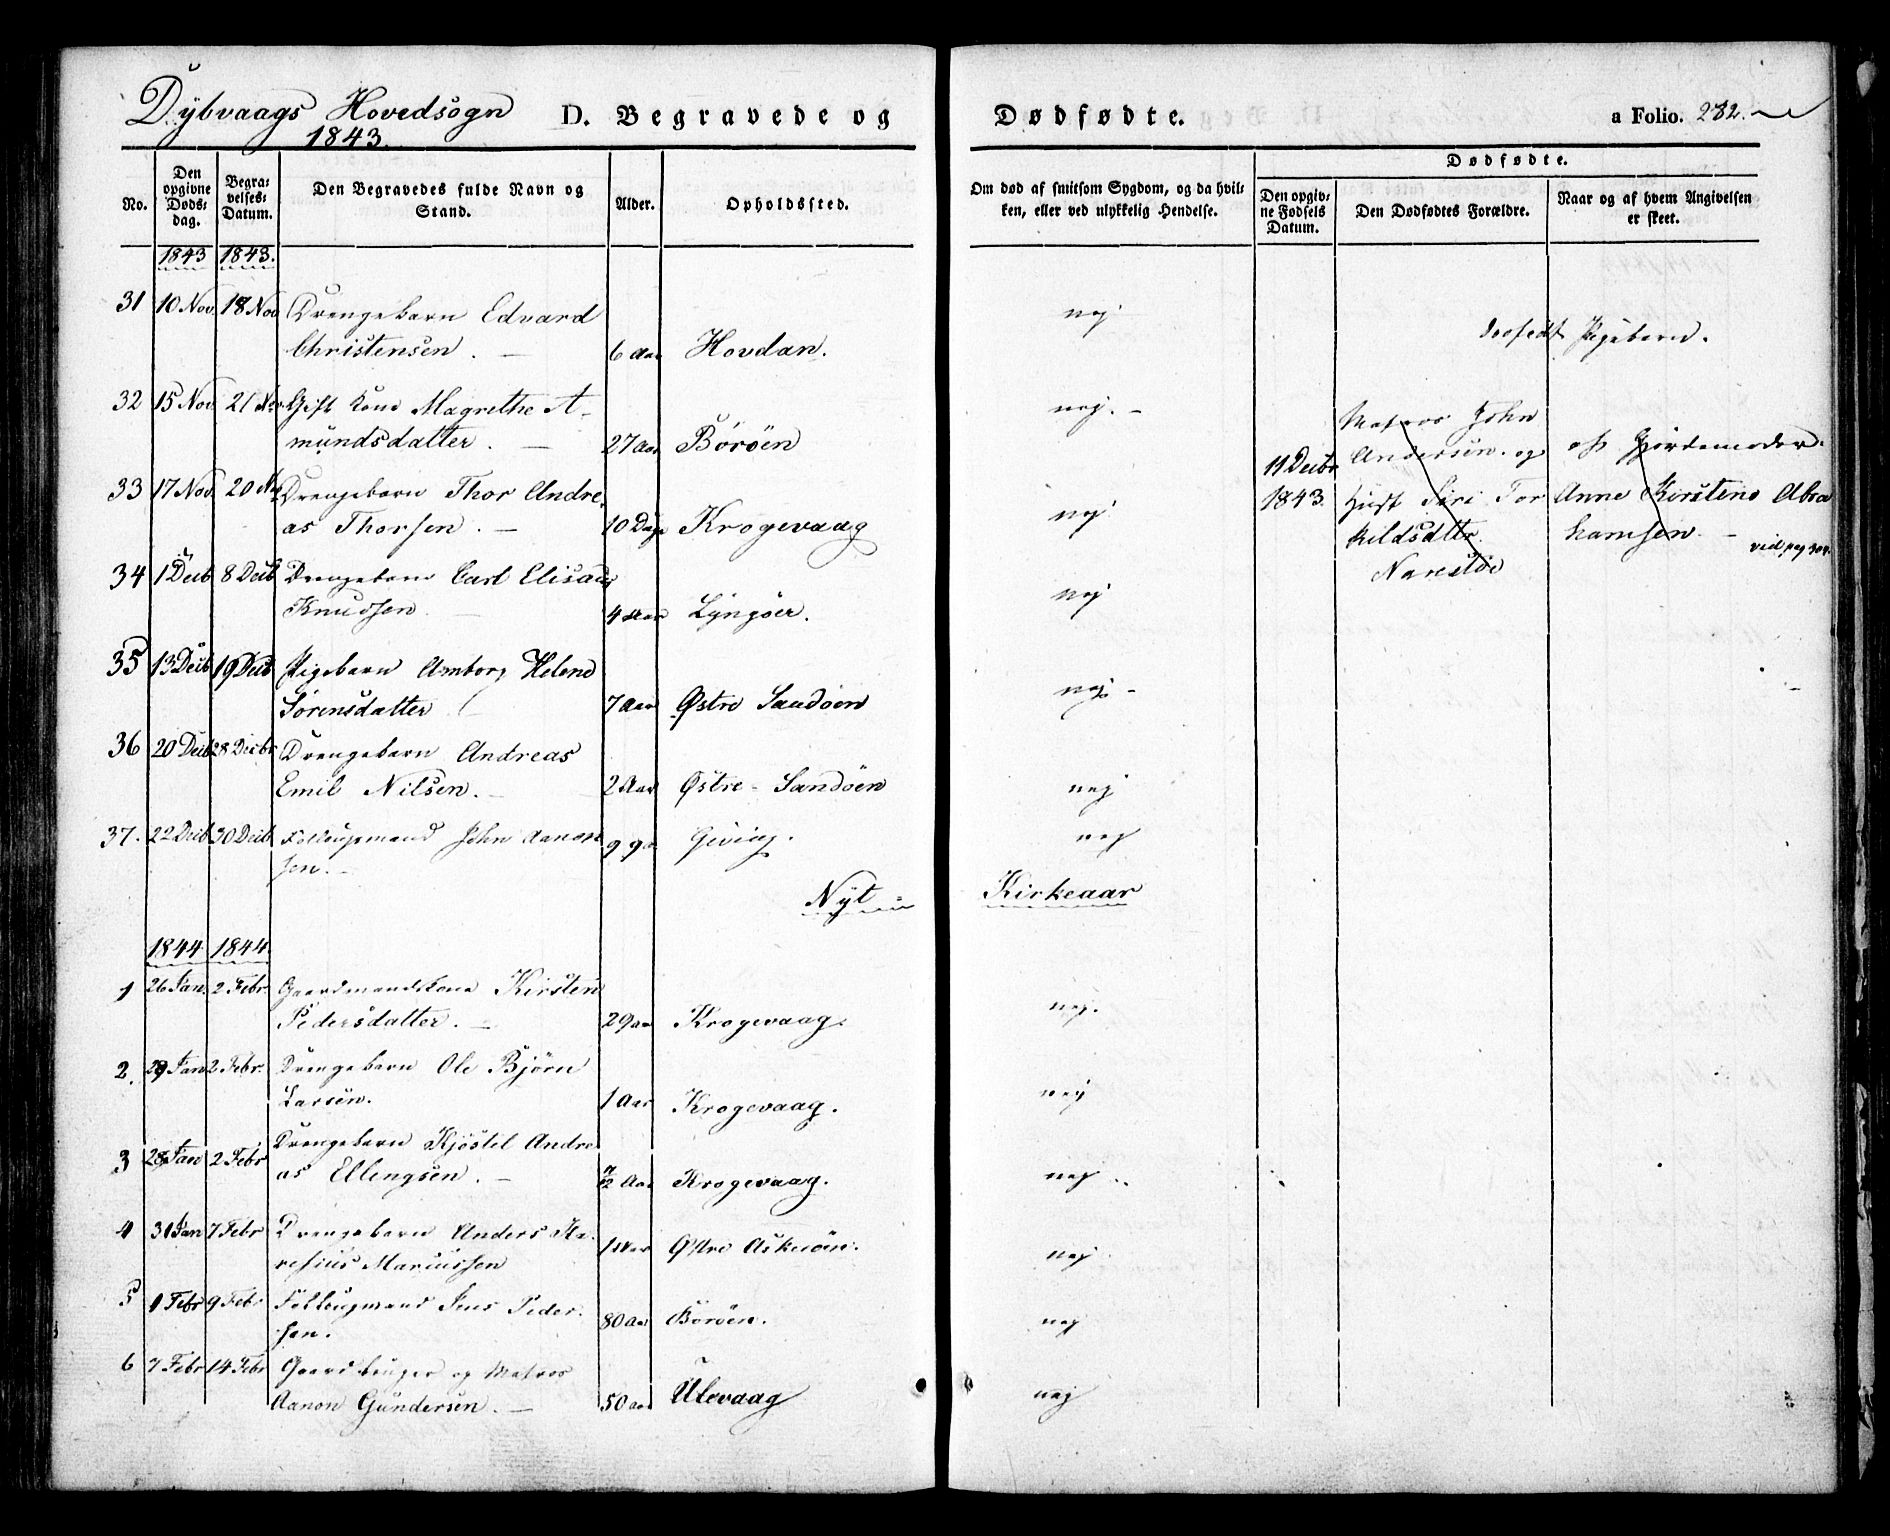 Dybvaags Hovedsogn D. Begravede og Dødfødte. a Folio. 282.
1843.
No.
Den opgivne Døds-dag.
Begra-velses-Datum.
Den Begravedes fulde Navn og Stand.
Alder.
Opholdssted.
Om død af smitsom Sygdom, og da hvil-ken, eller ved ulykkelig Hendelse.
Dødfødte.
Den opgiv-ne Fødsels Datum.
Den Dødfødtes Forældre.
Naar og af hvem Angivelsen er skeet.
1843 1843.
31 10 Nov 18 Nov Drengebarn Edvard
Christensen. 6 Aar Hovdan. nej
32 15 Nov 21 Nov Gift Kone Magrethe A-
mundsdatter. 27 Aar Böröen nej.
33 17 Nov 20 Nov Drengebarn Thor Andre
as Thorsen. 10 Dage Krogevaag nej
34 1 Decb 8 Decb Drengebarn Carl Elisaus
Knudsen 4 Aar Lyngöer. nej
35 13 Decb 19 Decb Pigebarn Amborg Helene
Sörensdatter 7 Aar Østre Sandöen nej
36 20 Decb 28 Decbr Drengebarn Andreas
Emil Nilsen. 2 Aar Østre-Sandöen nej
37. 22 Decb 30 Decb John Aanon
sen. Geving. nej
dødfødt Pigebarn.
11 Decbr
1843.
Matros John
Andersen og
Siri Tor
kildsdttr.
Narestöe
af Gjordemoder
Anne Kirstine Abra
hamsen.
vid. pag
Nyt Kirkeaar
1844 1844.
1 26 Jan. 2 Febr. Gaardmandskone Kirsten
Pedersdatter. 29 Aar Krogevaag. nej.
2. 29 Jan 2 Febr. Drengebarn Ole Björn
Larsen. 1 Aar Krogevaag. nej
3 28 Jan 2 Febr Drengebarn Kjöstel Andre
as Ellengsen. Aar Krogevaag. nej
4 31 Jan 7 Febr Drengebarn Anders
Mariussen 1 Aar Østre Askeröen. nej
5 1 Febr 9 Febr Jens Peder
sen. 80 Aar Boröen. nej
6 7 Febr 14 Febr Gaardbruger og Matros
Aanon Gundersen. 50 Aar Ulevaag nej